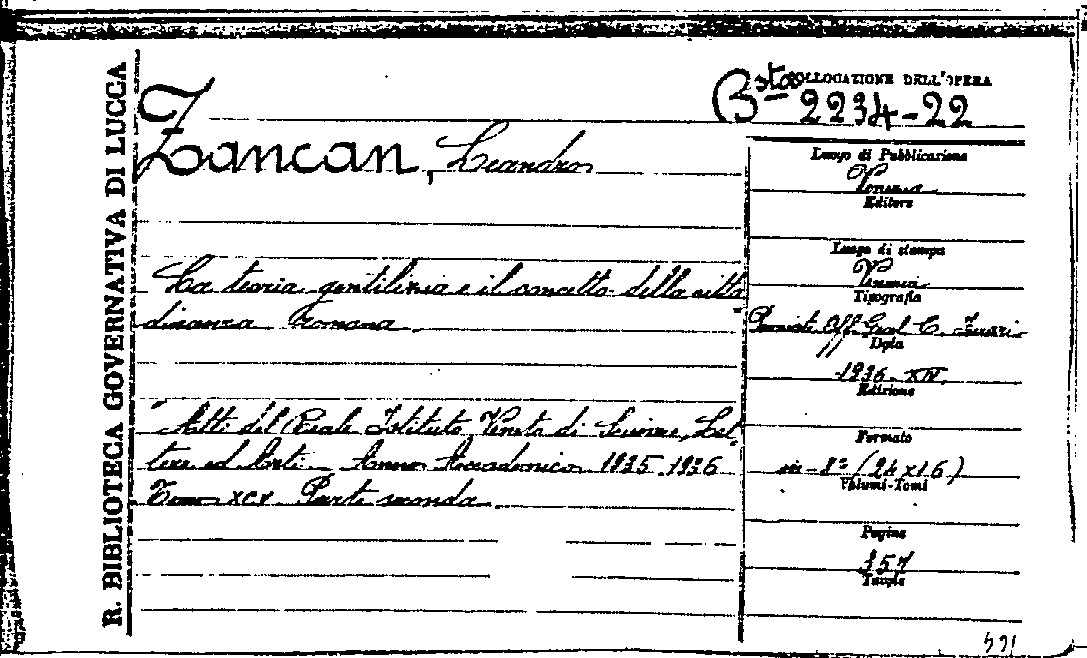 R. BIBLIOTECA GOVERNATIVA DI LUCCA
COLLOCAZIONE DELL'OPERA
Bsta 2234-22
Zancan, Leandro
La teoria gentilizia e il concetto della citta
dinanza romana.
"Atti del Reale Istituto Veneto di Scienze, Let
tere ed Arti - Anno Accademico 1935-1936"
Tomo XCV. Parte seconda.
Luogo di Pubblicazione
Venezia
Editore
Luogo di stampa
Venezia
Tipografia
Premiate Off. Graf. C. Ferrari
Data
1936-XIV.
Edizione
Formato
in-8º (24x16)
Volumi-Tomi
Pagine
Tavole